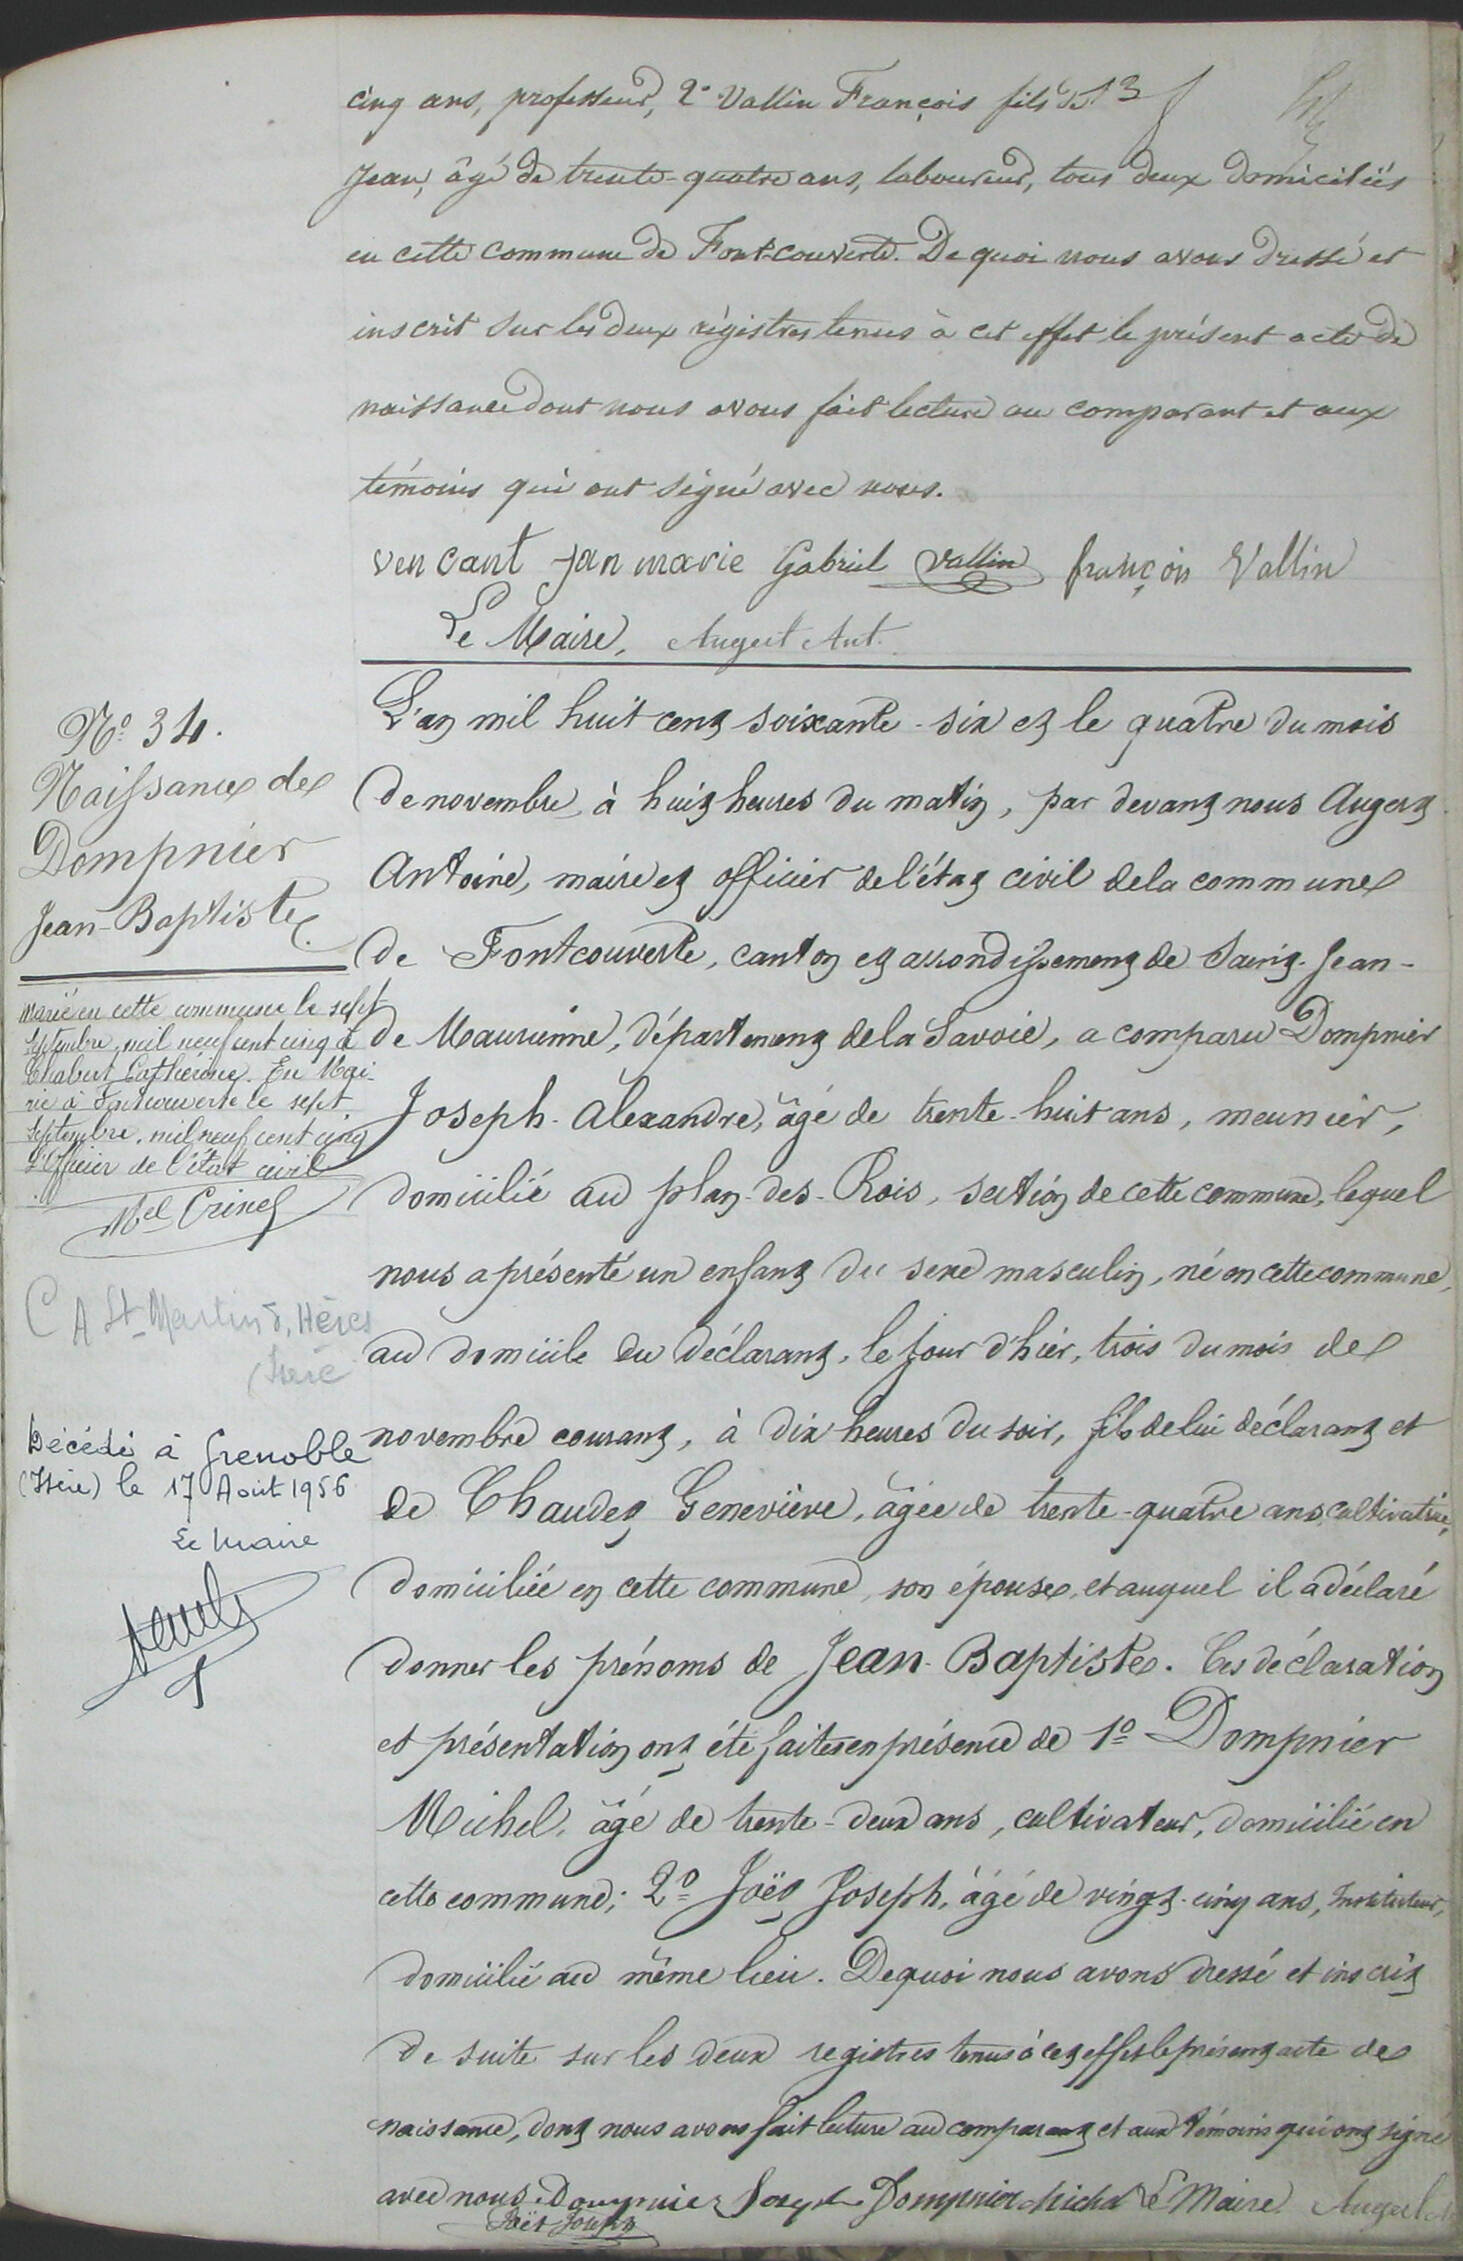 cinq ans, professeur, 2° Vallin François fils de
Jean, âgé de trente-quatre ans, laboureur, tous deux domiciliés
en cette commune de Fontcouverte. De quoi nous avons dressé et
inscrit sur les deux régistres tenus à cet effet le présent acte de
naissance dont nous avons fait lecture au comparant et aux
témoins qui ont signé avec nous.
vencant jan marie Gabriel Vallin françois Vallin
Le Maire, Augert Ant.
N° 34.
Naissance de
Dompnier
Jean-Baptiste.
Marié en cette commune le sept
septembre, mil neuf cent cinq à
Chabert Catherine. En Mai-
rie à Fontcouverte le sept
septembre, mil neuf cent cinq
L'Officier de l'état civil
A St-Martin d'Hères
Isère
Décédé à Grenoble
(Isère) le 17 Août 1956
Le Maire
L'an mil huit cent soixante-six et le quatre du mois
de novembre, à huit heures du matin, par devant nous Augert
Antoine, maire et officier de l'état civil de la commune
de Fontcouverte, canton et arrondissement de Saint-Jean-
de Maurienne, département de la Savoie, a comparu Dompnier
Joseph-Alexandre, âgé de trente-huit ans, meunier,
domicilié au plan-des-Rois, section de cette commune, lequel
nous a présenté un enfant du sexe masculin, né en cette commune,
au domicile du déclarant, le jour d'hier, trois du mois de
novembre courant, à dix heures du soir, fils de lui déclarant et
de Chaudet Geneviève, âgée de trente-quatre ans, cultivatrice,
domiciliée en cette commune, son épouse, et auquel il a déclaré
donner les prénoms de Jean-Baptiste. Ces déclaration
et présentation ont été faites en présence de 1° Dompnier
Michel, âgé de trente-deux ans, cultivateur, domicilié en
cette commune; 2° Joët Joseph, âgé de vingt-cinq ans, Instituteur,
domicilié au même lieu. De quoi nous avons dressé et inscrit
de suite sur les deux registres tenus à cet effet le présent acte de
naissance, dont nous avons fait lecture au comparant et aux témoins qui ont signé
avec nous. Dompnier Joseph Dompnier Michel Le Maire Augert
Joët Joseph